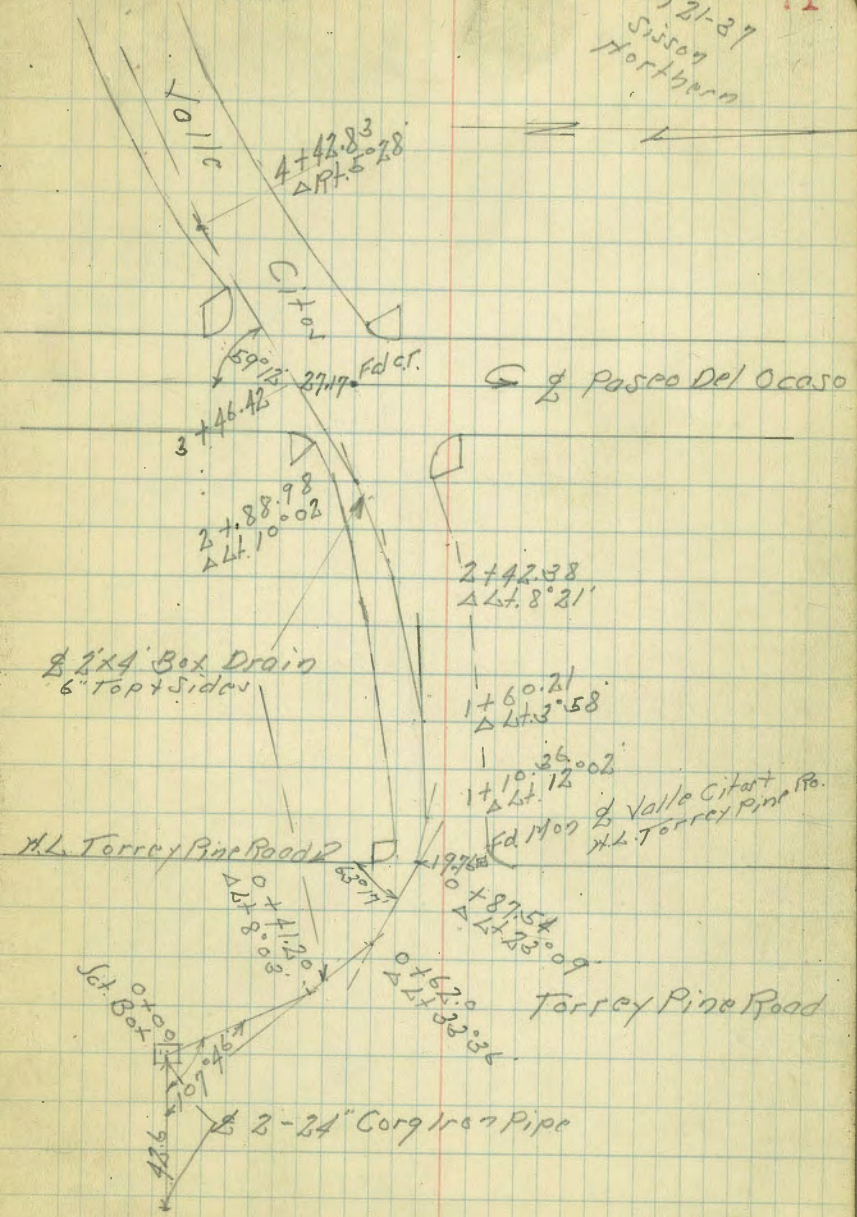 21-37
Sisson
Northern
Valle
Citos
4+42.83
Δ Rt. 5°28'
59°12'
27.17
Fd C.T.
3+46.42
℄ Paseo Del Ocaso
2+88.98
Δ Lt. 10°02
2+42.38
Δ Lt. 8°21'
℄ 2'x4' Box Drain
6" Top & Sides
1+60.21
Δ Lt. 3°58'
1+10.36
Δ Lt. 12°02'
Fd. Mon ℄ Valle Citos &
N.L. Torrey Pine Rd.
N.L. Torrey Pine Road
63°17'
19.76
0+87.54
Δ Lt 23°09
0+41.20
Δ Lt 8°03'
0+62.0
Δ Lt 33°36
Torrey Pine Road
0+00
Jct. Box
107°46'
℄ 2-24" Corg Iron Pipe
42.6